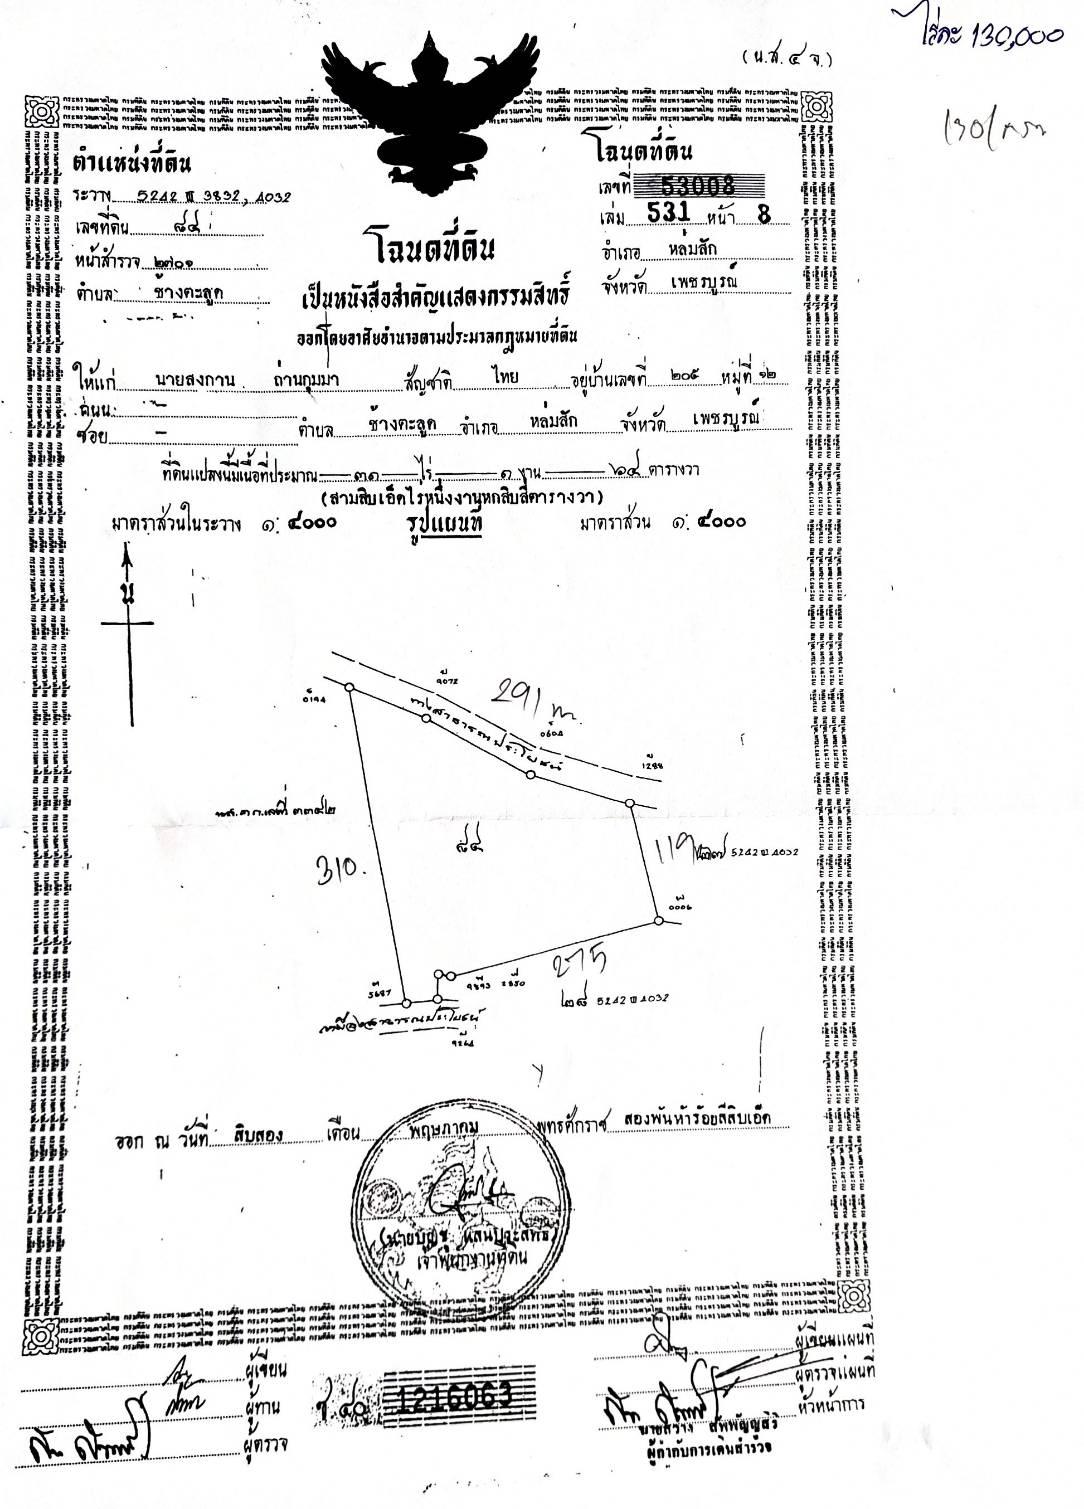 ไร่ละ 130,000
(น.ส. ๔ จ.)
130/ตรว
ตำแหน่งที่ดิน
ระวาง 5242 III 3832, 4032
เลขที่ดิน ๘๔
หน้าสำรวจ ๒๗๐๑
ตำบล ช้างตะลูด
โฉนดที่ดิน
เลขที่ 53008
เล่ม 531 หน้า 8
อำเภอ หล่มสัก
จังหวัด เพชรบูรณ์
โฉนดที่ดิน
เป็นหนังสือสำคัญแสดงกรรมสิทธิ์
ออกโดยอาศัยอำนาจตามประมวลกฎหมายที่ดิน
ให้แก่ นายสงกาน ถ่านกุมมา สัญชาติ ไทย อยู่บ้านเลขที่ ๒๐๕ หมู่ที่ ๑๒
ถนน –
ซอย – ตำบล ช้างตะลูด อำเภอ หล่มสัก จังหวัด เพชรบูรณ์
ที่ดินแปลงนี้มีเนื้อที่ประมาณ ๓๑ ไร่ ๑ งาน ๖๔ ตารางวา
(สามสิบเอ็ดไร่หนึ่งงานหกสิบสี่ตารางวา)
มาตราส่วนในระวาง ๑: ๔๐๐๐ รูปแผนที่ มาตราส่วน ๑: ๔๐๐๐
น
9072
291 ม.
ทางสาธารณประโยชน์
0604
1288
น.ส. ๓ ก. เลขที่ ๓๓๔๒
๘๔
310.
119
5242 III 4032
0006
275
9893 2850
๒๘ 5242 III 4032
5687
ทางสาธารณประโยชน์
ออก ณ วันที่ สิบสอง เดือน พฤษภาคม พุทธศักราช สองพันห้าร้อยสี่สิบเอ็ด
เจ้าพนักงานที่ดิน
ผู้เขียน
ผู้ทาน
ผู้ตรวจ
1216063
ผู้เขียนแผนที่
ผู้ตรวจแผนที่
หัวหน้าการ
นายสว่าง สัพพัญญูสิริ
ผู้กำกับการเดินสำรวจ